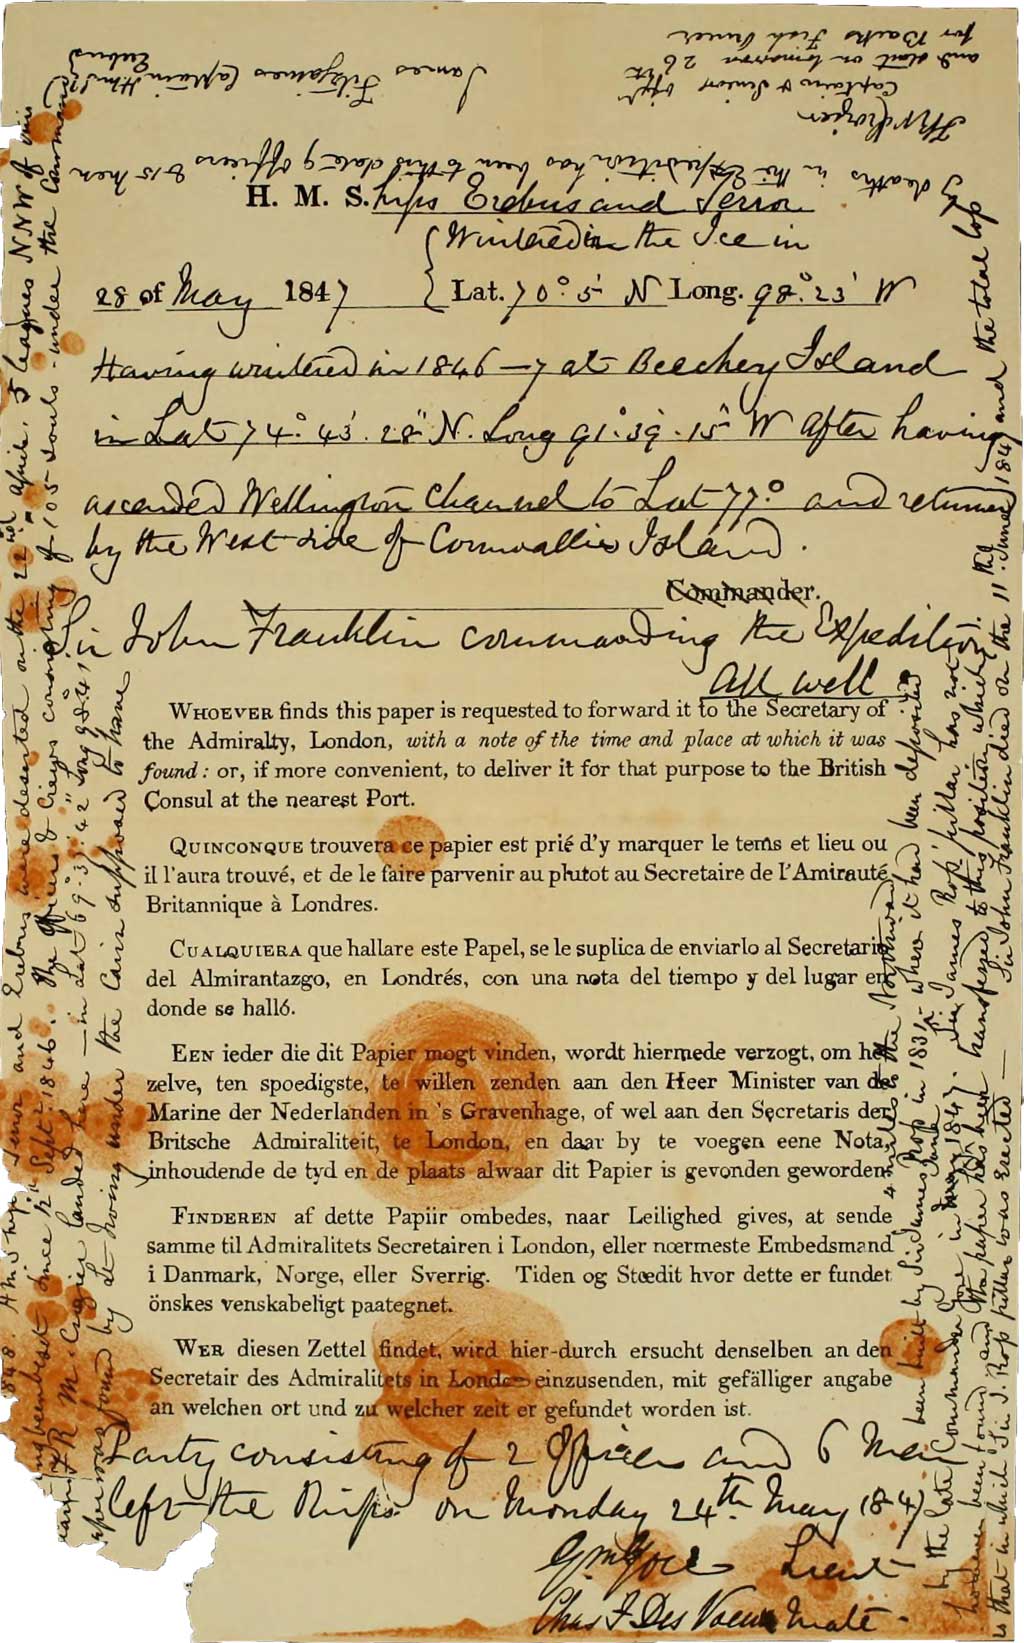 H. M. S.hips Erebus and Terror
Wintered in the Ice in
28 of May 1847 Lat. 70°. 5' N Long. 98°. 23' W
Having wintered in 1846–7 at Beechey Island
in Lat 74°. 43'. 28" N. Long 91°. 39'. 15" W After having
ascended Wellington Channel to Lat 77°. and returned
by the West side of Cornwallis Island.
Commander.
Sir John Franklin commanding the Expedition
All well
WHOEVER finds this paper is requested to forward it to the Secretary of
the Admiralty, London, with a note of the time and place at which it was
found: or, if more convenient, to deliver it for that purpose to the British
Consul at the nearest Port.
QUINCONQUE trouvera ce papier est prié d'y marquer le tems et lieu ou
il l'aura trouvé, et de le faire parvenir au plutot au Secretaire de l'Amirauté
Britannique à Londres.
CUALQUIERA que hallare este Papel, se le suplica de enviarlo al Secretario
del Almirantazgo, en Londrés, con una nota del tiempo y del lugar en
donde se halló.
EEN ieder die dit Papier mogt vinden, wordt hiermede verzogt, om het
zelve, ten spoedigste, te willen zenden aan den Heer Minister van de
Marine der Nederlanden in 's Gravenhage, of wel aan den Secretaris der
Britsche Admiraliteit, te London, en daar by te voegen eene Nota,
inhoudende de tyd en de plaats alwaar dit Papier is gevonden geworden
FINDEREN af dette Papiir ombedes, naar Leilighed gives, at sende
samme til Admiralitets Secretairen i London, eller nœrmeste Embedsmand
i Danmark, Norge, eller Sverrig. Tiden og Stœdit hvor dette er fundet
önskes venskabeligt paategnet.
WER diesen Zettel findet, wird hier-durch ersucht denselben an den
Secretair des Admiralitets in London einzusenden, mit gefälliger angabe
an welchen ort und zu welcher zeit er gefundet worden ist.
Party consisting of 2 Officers and 6 Men
left the Ships on Monday 24th. May 1847
Gm Gore Lieut
Chas F Des Voeux Mate.
1848 H M Ships Terror and Erebus were deserted on the 22nd April, 5 leagues NNW of this
ng been beset since 12th Sept 1846. The Officers & Crews consisting of 105 souls - under the command
tain F R M Crozier landed here — in Lat 69°. 37'. 42" Long 98°. 41'
aper was found by Lt Irving under the Cairn supposed to have
been built by Sir James Ross in 1831 — where it had been deposited
4 miles to the Northward
by the late Commander Gore in June 1847. Sir James Ross' pillar has not
however been found and the paper has been transferred to this position which
is that in which Sir J. Ross' pillar was erected —
Sir John Franklin died on the 11th June 1847 and the total loss
by deaths in the Expedition has been to this date 9 officers & 15 men
James Fitzjames Captain HMS Erebus
F R M Crozier
Captain & Senior Offr
and start on tomorrow 26th
for Backs Fish River